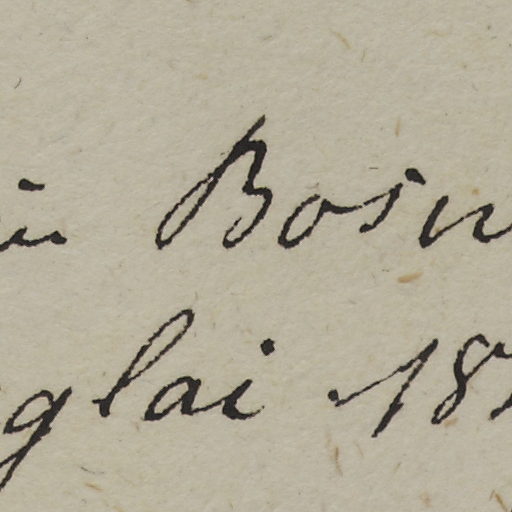 in Bosn
glai 18